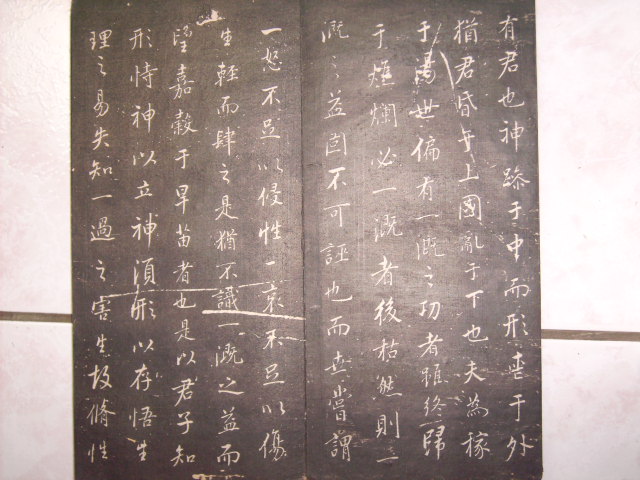 有君也神躁于中而形喪于外
猶君昏于上國亂于下也夫為稼
于湯世偏有一溉之功者雖終歸
于燋爛必一溉者後枯然則一
溉之益固不可誣也而世嘗謂
一怒不足以侵性一哀不足以傷
生輕而肆之是猶不識一溉之益而
望嘉穀于旱苗者也是以君子知
形恃神以立神須形以存悟生
理之易失知一過之害生故脩性